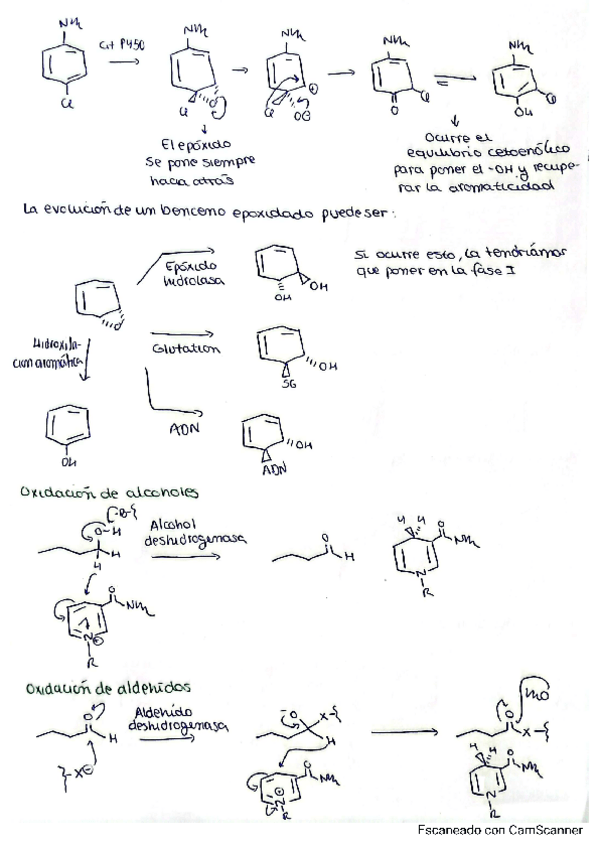 NH₂ NH₂ NH₂ NH₂ NH₂
Cit P450
Cl Cl O Cl O⊖ ⊕ O Cl OH Cl
El epóxido
se pone siempre
hacia atrás
Ocurre el
equilibrio cetoenólico
para poner el -OH y recupe-
rar la aromaticidad
La evolución de un benceno epoxidado puede ser:
Epóxido
hidrolasa
OH OH
Si ocurre esto, la tendríamos
que poner en la fase I
O
Hidroxila-
ción aromática
Glutation
OH
SG
OH
ADN
OH
ADN
Oxidación de alcoholes
O-H
H
H
Alcohol
deshidrogenasa
O
H
H H
O
NH₂
N
R
O
NH₂
N⊕
R
Oxidación de aldehídos
O
H
Aldehído
deshidrogenasa
X⊖
⁻O X
H
O
NH₂
⊕
N
R
H₂O
O
X
H H
O
NH₂
N
R
Escaneado con CamScanner